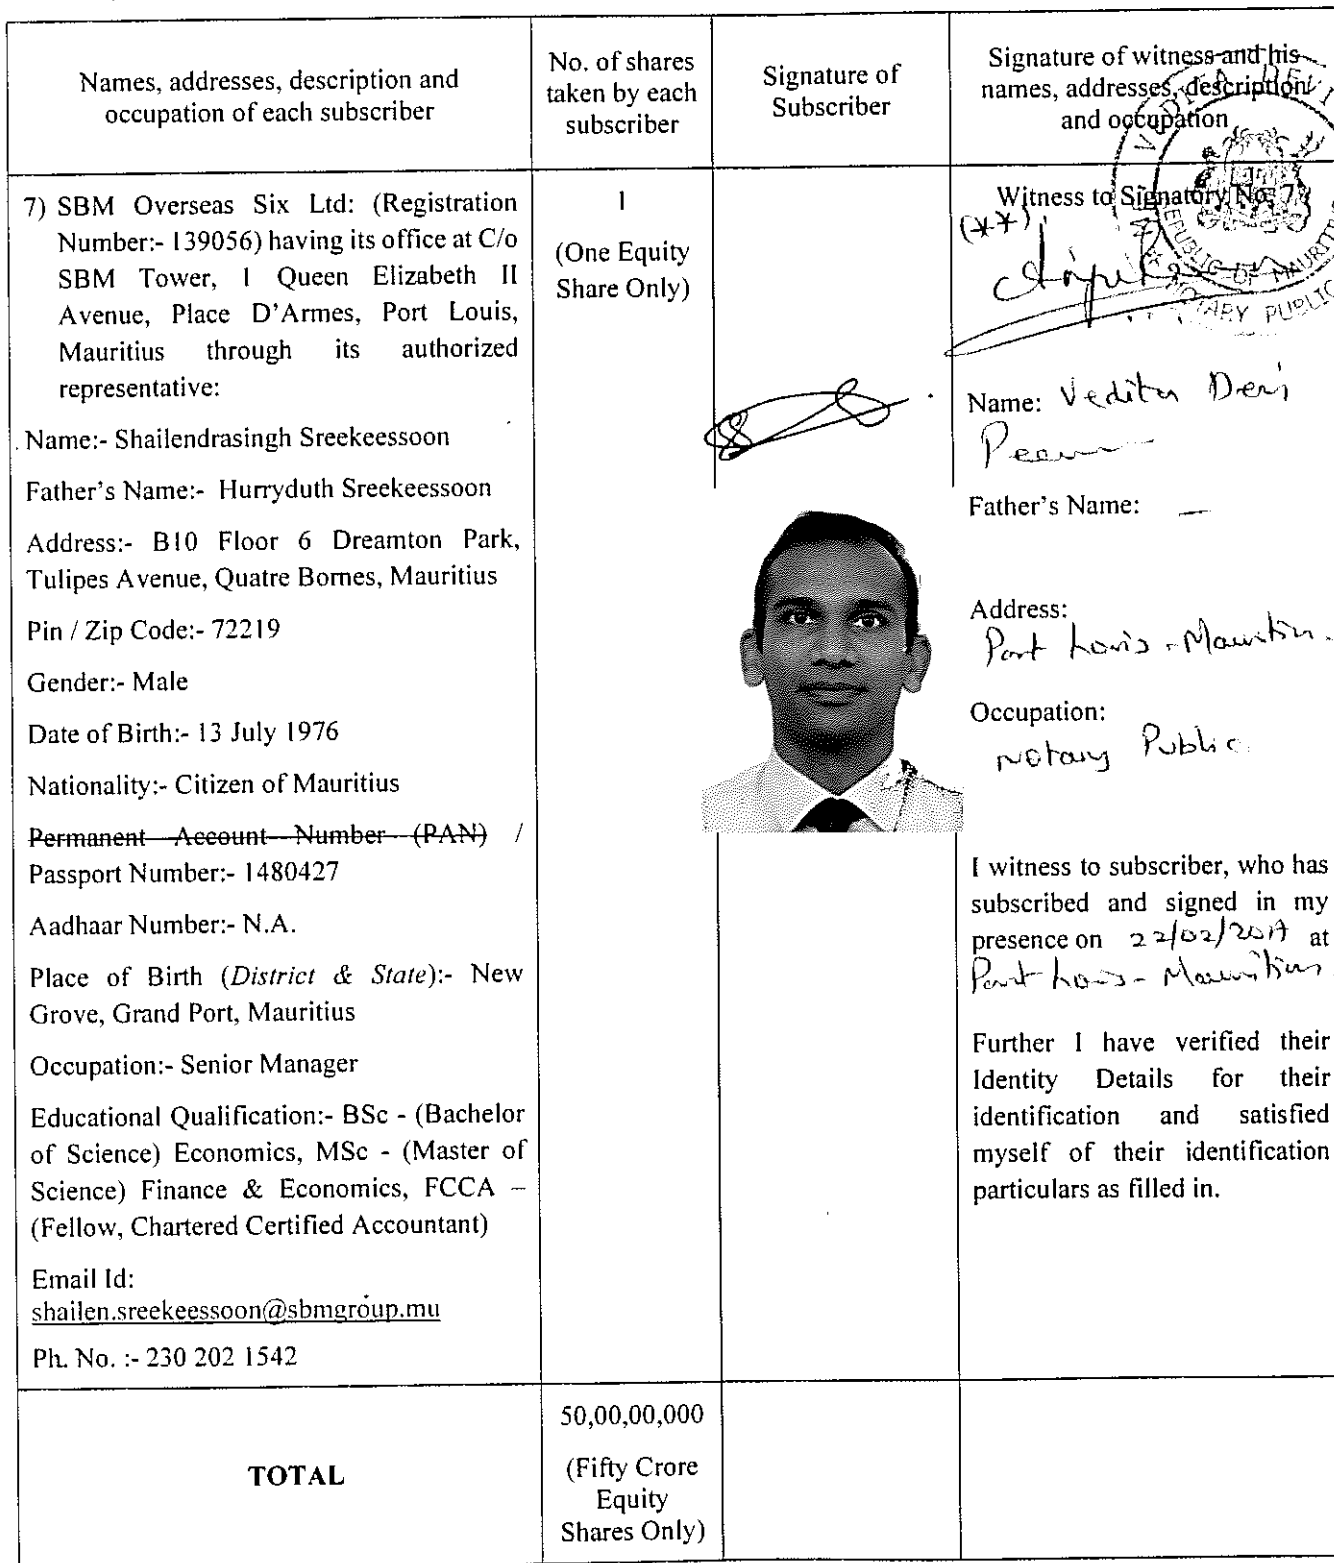 Names, addresses, description and
occupation of each subscriber
No. of shares
taken by each
subscriber
Signature of
Subscriber
Signature of witness and his
names, addresses, description
and occupation
7) SBM Overseas Six Ltd: (Registration
Number:- 139056) having its office at C/o
SBM Tower, 1 Queen Elizabeth II
Avenue, Place D'Armes, Port Louis,
Mauritius through its authorized
representative:
Name:- Shailendrasingh Sreekeessoon
Father's Name:- Hurryduth Sreekeessoon
Address:- B10 Floor 6 Dreamton Park,
Tulipes Avenue, Quatre Bornes, Mauritius
Pin / Zip Code:- 72219
Gender:- Male
Date of Birth:- 13 July 1976
Nationality:- Citizen of Mauritius
Permanent Account Number (PAN) /
Passport Number:- 1480427
Aadhaar Number:- N.A.
Place of Birth (District & State):- New
Grove, Grand Port, Mauritius
Occupation:- Senior Manager
Educational Qualification:- BSc - (Bachelor
of Science) Economics, MSc - (Master of
Science) Finance & Economics, FCCA –
(Fellow, Chartered Certified Accountant)
Email Id:
shailen.sreekeessoon@sbmgroup.mu
Ph. No. :- 230 202 1542
1
(One Equity
Share Only)
Witness to Signatory No. 7
(**)
VEDITA DEVI
REPUBLIC OF MAURITIUS
NOTARY PUBLIC
Name: Vedita Devi
Father's Name: —
Address:
Port Louis - Mauritius.
Occupation:
Notary Public
I witness to subscriber, who has
subscribed and signed in my
presence on 22/02/2017 at
Port Louis - Mauritius.
Further I have verified their
Identity Details for their
identification and satisfied
myself of their identification
particulars as filled in.
TOTAL
50,00,00,000
(Fifty Crore
Equity
Shares Only)